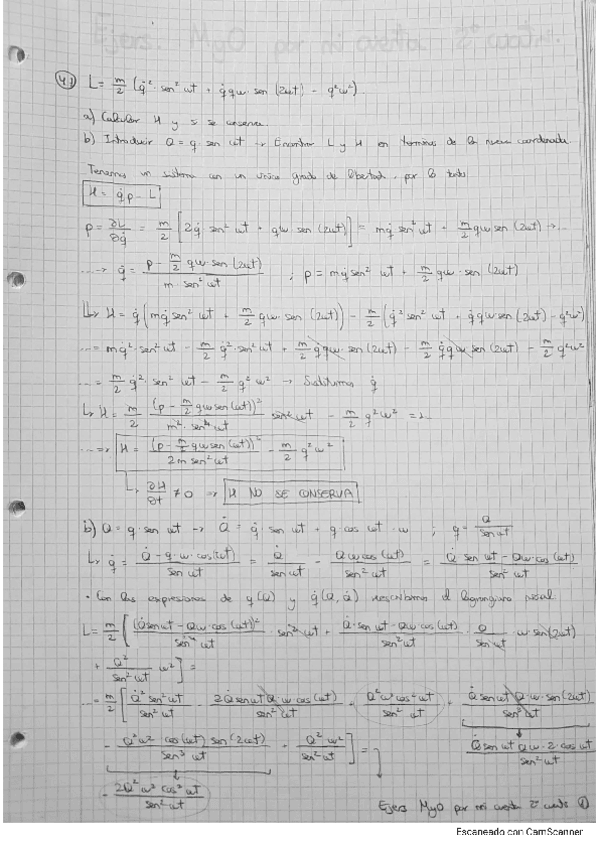 4.1) L = m/2 (q̇² · sen² ωt + q̇qω · sen (2ωt) - q²ω²).
a) Calcular H y si se conserva.
b) Introducir Q = q · sen ωt → Encontrar L y H en términos de la nueva coordenada.
Tenemos un sistema con un único grado de libertad, por lo tanto
H = q̇p - L
p = ∂L/∂q̇ = m/2 [2q̇ sen² ωt + qω sen (2ωt)] = mq̇ sen² ωt + m/2 qω sen (2ωt) → ...
... → q̇ = (p - m/2 qω · sen (2ωt)) / (m · sen² ωt) ; p = mq̇ sen² ωt + m/2 qω · sen (2ωt)
↳ H = q̇ (mq̇ sen² ωt + m/2 qω · sen (2ωt)) - m/2 (q̇² sen² ωt + q̇qω sen (2ωt) - q²ω²)
... = mq̇² · sen² ωt - m/2 q̇² · sen² ωt + m/2 q̇qω · sen (2ωt) - m/2 q̇qω sen (2ωt) - m/2 q²ω²
... = m/2 q̇² · sen² ωt - m/2 q²ω² → Sustituimos q̇
↳ H = m/2 (p - m/2 qω sen (ωt))² / (m² · sen⁴ ωt) sen² ωt - m/2 q²ω² = ...
... => H = (p - m/2 qω sen (ωt))² / (2m sen² ωt) - m/2 q²ω²
↳ ∂H/∂t ≠ 0 => H NO SE CONSERVA
b) Q = q · sen ωt → Q̇ = q̇ · sen ωt + q · cos ωt · ω ; q = Q / sen ωt
↳ q̇ = (Q̇ - q · ω · cos(ωt)) / sen ωt = Q̇ / sen ωt - Qω cos (ωt) / sen² ωt = (Q̇ sen ωt - Qω · cos (ωt)) / sen² ωt
· Con las expresiones de q(Q) y q̇(Q, Q̇) reescribimos el lagrangiano
L = m/2 [(Q̇ sen ωt - Qω · cos (ωt))² / sen⁴ ωt · sen² ωt + (Q̇ · sen ωt - Qω cos (ωt)) / sen² ωt · Q / sen ωt · ω · sen (2ωt)
+ Q² / sen² ωt ω²] =
... = m/2 [Q̇² sen² ωt / sen² ωt - 2Q̇ sen ωt Q · ω · cos (ωt) / sen² ωt + Q²ω² cos² ωt / sen² ωt + Q̇ sen ωt Q · ω · sen (2ωt) / sen³ ωt
- Q²ω² cos (ωt) sen (2ωt) / sen³ ωt + Q²ω² / sen² ωt] =
Q̇ sen ωt Qω · 2 · cos ωt / sen² ωt
- 2Q²ω² cos² ωt / sen² ωt
Ejers MyO por mi cuenta 2º cuatri ①
Escaneado con CamScanner